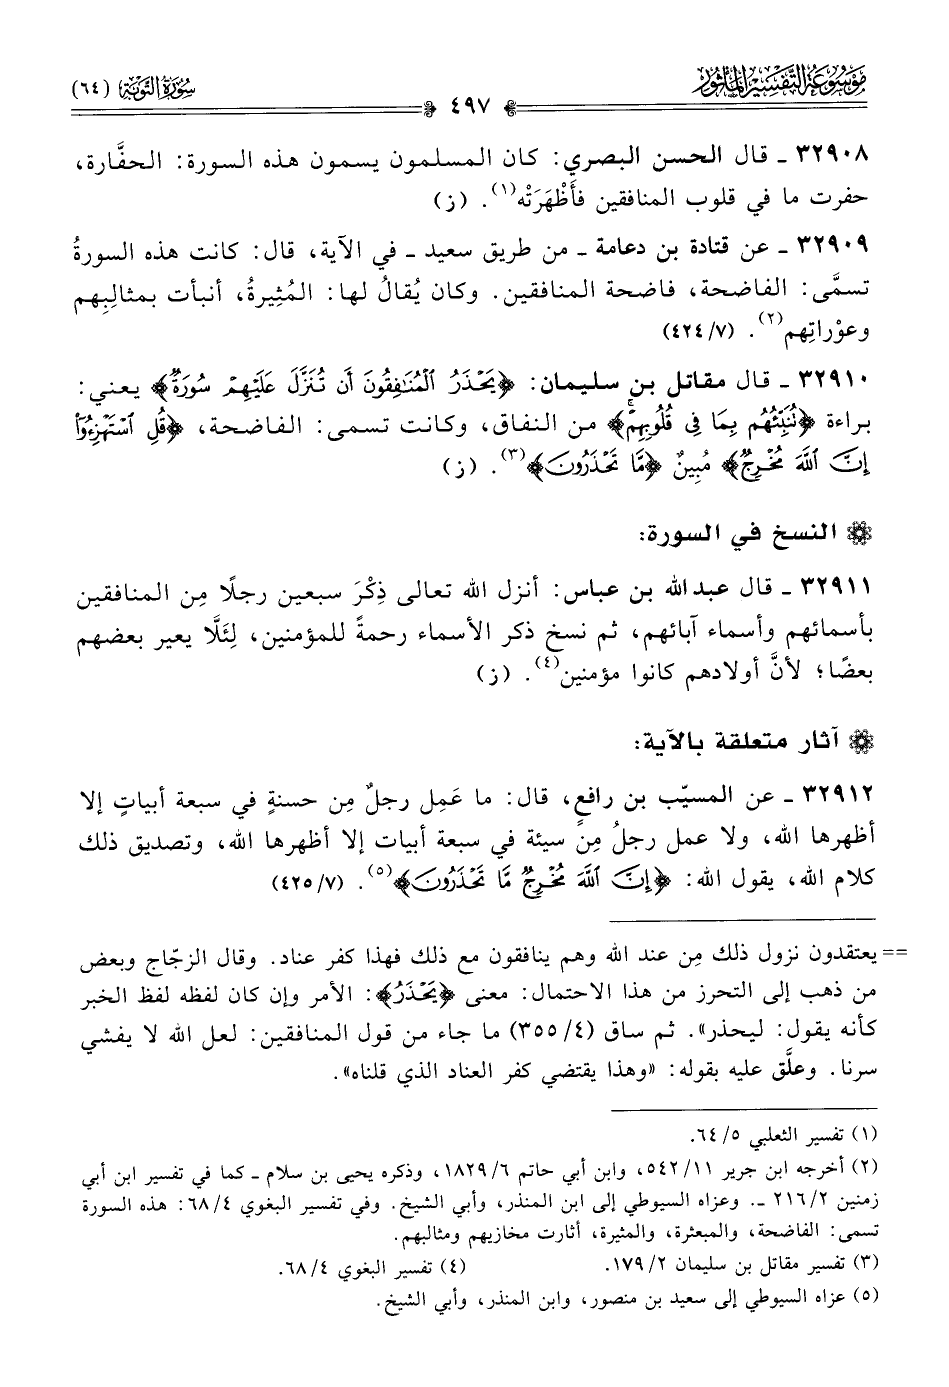 مَوْسُوعَة التَّفْسِير المَأثُور
سُورَةُ التَّوْبَة (٦٤)
٤٩٧
٣٢٩٠٨ ـ قال الحسن البصري: كان المسلمون يسمون هذه السورة: الحفَّارة،
حفرت ما في قلوب المنافقين فأَظْهَرَتْه(١). (ز)
٣٢٩٠٩ ـ عن قتادة بن دعامة ـ من طريق سعيد ـ في الآية، قال: كانت هذه السورةُ
تسمَّى: الفاضحة، فاضحة المنافقين. وكان يُقالُ لها: المُثِيرةُ، أنبأت بمثالِبِهم
وعوْراتِهم(٢). (٧/ ٤٢٤)
٣٢٩١٠ ـ قال مقاتل بن سليمان: ﴿يَحْذَرُ الْمُنَافِقُونَ أَن تُنَزَّلَ عَلَيْهِمْ سُورَةٌ﴾ يعني:
براءة ﴿تُنَبِّئُهُم بِمَا فِي قُلُوبِهِمْ﴾ من النفاق، وكانت تسمى: الفاضحة، ﴿قُلِ اسْتَهْزِءُوا
إِنَّ اللَّهَ مُخْرِجٌ﴾ مُبِينٌ ﴿مَّا تَحْذَرُونَ﴾(٣). (ز)
النسخ في السورة:
٣٢٩١١ ـ قال عبد الله بن عباس: أنزل الله تعالى ذِكْرَ سبعين رجلًا مِن المنافقين
بأسمائهم وأسماء آبائهم، ثم نسخ ذكر الأسماء رحمةً للمؤمنين، لِئَلَّا يعير بعضهم
بعضًا؛ لأنَّ أولادهم كانوا مؤمنين(٤). (ز)
آثار متعلقة بالآية:
٣٢٩١٢ ـ عن المسيّب بن رافعٍ، قال: ما عَمِل رجلٌ مِن حسنةٍ في سبعة أبياتٍ إلا
أظهرها الله، ولا عمل رجلُ مِن سيئة في سبعة أبيات إلا أظهرها الله، وتصديق ذلك
كلام الله، يقول الله: ﴿إِنَّ اللَّهَ مُخْرِجٌ مَّا تَحْذَرُونَ﴾(٥). (٧/ ٤٢٥)
== يعتقدون نزول ذلك مِن عند الله وهم ينافقون مع ذلك فهذا كفر عناد. وقال الزجّاج وبعض
من ذهب إلى التحرز من هذا الاحتمال: معنى ﴿يَحْذَرُ﴾: الأمر وإن كان لفظه لفظ الخبر
كأنه يقول: ليحذر». ثم ساق (٤/ ٣٥٥) ما جاء من قول المنافقين: لعل الله لا يفشي
سرنا. وعلَّق عليه بقوله: «وهذا يقتضي كفر العناد الذي قلناه».
(١) تفسير الثعلبي ٥/ ٦٤.
(٢) أخرجه ابن جرير ١١/ ٥٤٢، وابن أبي حاتم ٦/ ١٨٢٩، وذكره يحيى بن سلام ـ كما في تفسير ابن أبي
زمنين ٢/ ٢١٦ ـ. وعزاه السيوطي إلى ابن المنذر، وأبي الشيخ. وفي تفسير البغوي ٤/ ٦٨: هذه السورة
تسمى: الفاضحة، والمبعثرة، والمثيرة، أثارت مخازيهم ومثالبهم.
(٣) تفسير مقاتل بن سليمان ٢/ ١٧٩. (٤) تفسير البغوي ٤/ ٦٨.
(٥) عزاه السيوطي إلى سعيد بن منصور، وابن المنذر، وأبي الشيخ.